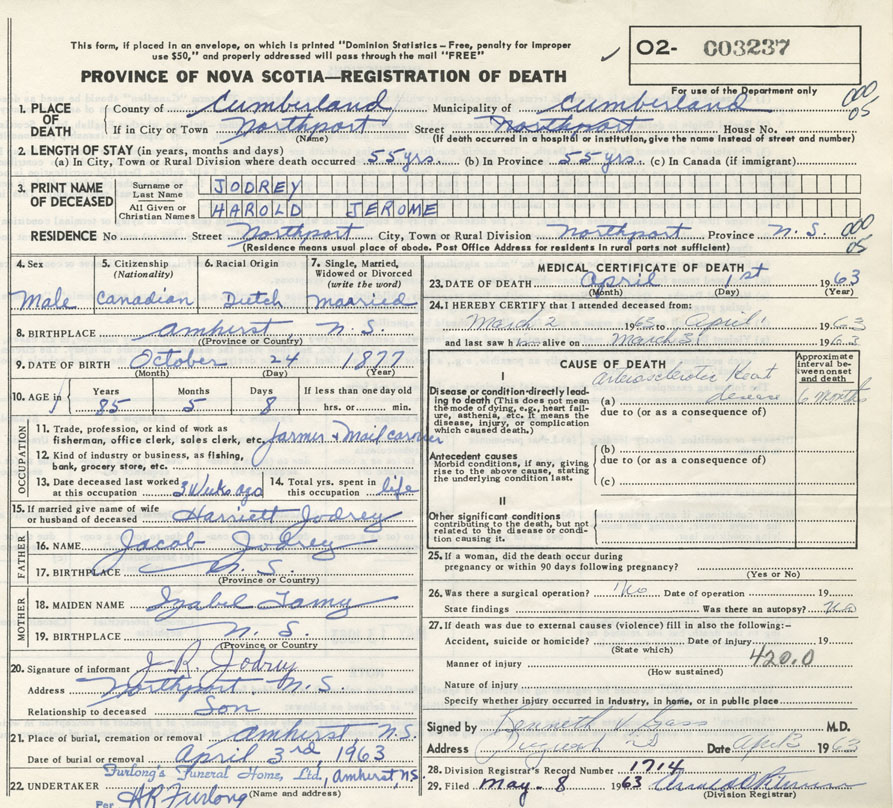 This form, if placed in an envelope, on which is printed "Dominion Statistics – Free, penalty for improper
use $50," and properly addressed will pass through the mail "FREE"
✓ O2- 003237
PROVINCE OF NOVA SCOTIA—REGISTRATION OF DEATH
For use of the Department only
000
05
1. PLACE OF DEATH
County of Cumberland Municipality of Cumberland
If in City or Town Northport Street Northport House No.
(Name) (If death occurred in a hospital or institution, give the name instead of street and number)
2. LENGTH OF STAY (in years, months and days)
(a) In City, Town or Rural Division where death occurred 55 yrs. (b) In Province 55 yrs. (c) In Canada (if immigrant)
3. PRINT NAME OF DECEASED
Surname or Last Name JODREY
All Given or Christian Names HAROLD JEROME
RESIDENCE No Street Northport City, Town or Rural Division Northport Province N.S. 000
05
(Residence means usual place of abode. Post Office Address for residents in rural parts not sufficient)
4. Sex Male
5. Citizenship (Nationality) Canadian
6. Racial Origin Dutch
7. Single, Married, Widowed or Divorced (write the word) married
8. BIRTHPLACE Amherst N.S.
(Province or Country)
9. DATE OF BIRTH October 24 1877
(Month) (Day) (Year)
10. AGE in Years 85 Months 5 Days 8 If less than one day old hrs. or min.
OCCUPATION
11. Trade, profession, or kind of work as fisherman, office clerk, sales clerk, etc. Farmer + Mail carrier
12. Kind of industry or business, as fishing, bank, grocery store, etc.
13. Date deceased last worked at this occupation 3 Weeks ago
14. Total yrs. spent in this occupation life
15. If married give name of wife or husband of deceased Harriett Jodrey
FATHER
16. NAME Jacob Jodrey
17. BIRTHPLACE N.S.
(Province or Country)
MOTHER
18. MAIDEN NAME Izabel
19. BIRTHPLACE N.S.
(Province or Country)
20. Signature of informant J. R. Jodrey
Address Northport, N.S.
Relationship to deceased Son
21. Place of burial, cremation or removal Amherst, N.S.
Date of burial or removal April 3rd, 1963
22. UNDERTAKER Furlong's Funeral Home, Ltd, Amherst, N.S.
(Name and address)
Per H R Furlong
MEDICAL CERTIFICATE OF DEATH
23. DATE OF DEATH April 1st 1963
(Month) (Day) (Year)
24. I HEREBY CERTIFY that I attended deceased from:
March 2 1963 to April 1 1963
and last saw h alive on March 31 1963
CAUSE OF DEATH
Approximate interval between onset and death
I
Disease or condition directly leading to death (This does not mean the mode of dying, e.g., heart failure, asthenia, etc. It means the disease, injury, or complication which caused death.)
(a) arteriosclerotic Heart disease 6 months
due to (or as a consequence of)
Antecedent causes
Morbid conditions, if any, giving rise to the above cause, stating the underlying condition last.
(b)
due to (or as a consequence of)
(c)
II
Other significant conditions
contributing to the death, but not related to the disease or condition causing it.
25. If a woman, did the death occur during pregnancy or within 90 days following pregnancy?
(Yes or No)
26. Was there a surgical operation? No Date of operation 19
State findings Was there an autopsy? No
27. If death was due to external causes (violence) fill in also the following:–
Accident, suicide or homicide? Date of injury 19
(State which)
Manner of injury 420.0
(How sustained)
Nature of injury
Specify whether injury occurred in industry, in home, or in public place
Signed by Kenneth V Gass M.D.
Address Pugwash NS Date Apr 3 1963
28. Division Registrar's Record Number 1714
29. Filed May - 8 1963
(Division Registrar)